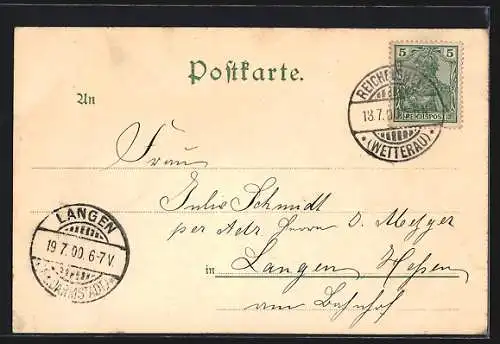 Postkarte.
5 5
REICHSPOST
REICHELSHEIM
18.7.00
*(WETTERAU)*
An
Frau
Julie Schmidt
per Adr. Herrn O. Metzger
in Langen Hessen
am Bahnhof
LANGEN
19.7.00.6-7V.
(BZ. DARMSTADT)